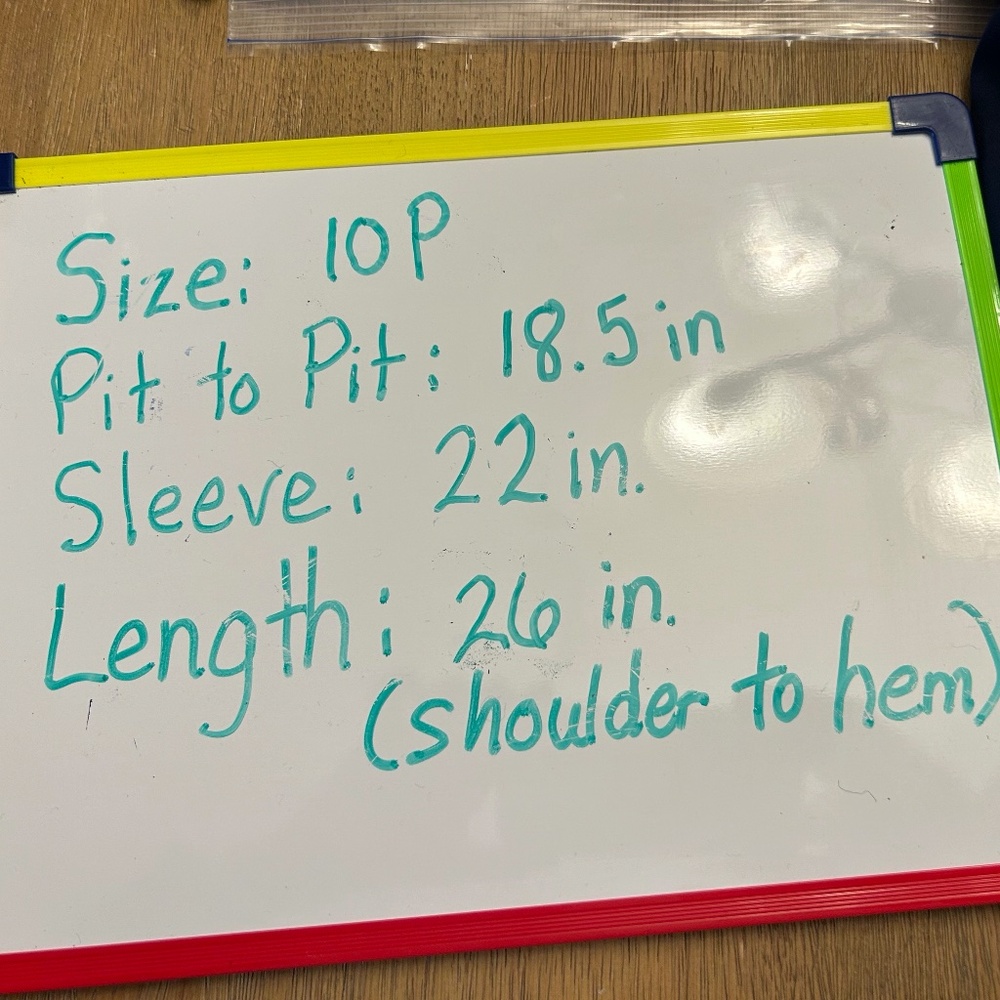 Size: 10P
Pit to Pit: 18.5 in
Sleeve: 22 in.
Length: 26 in.
(shoulder to hem)